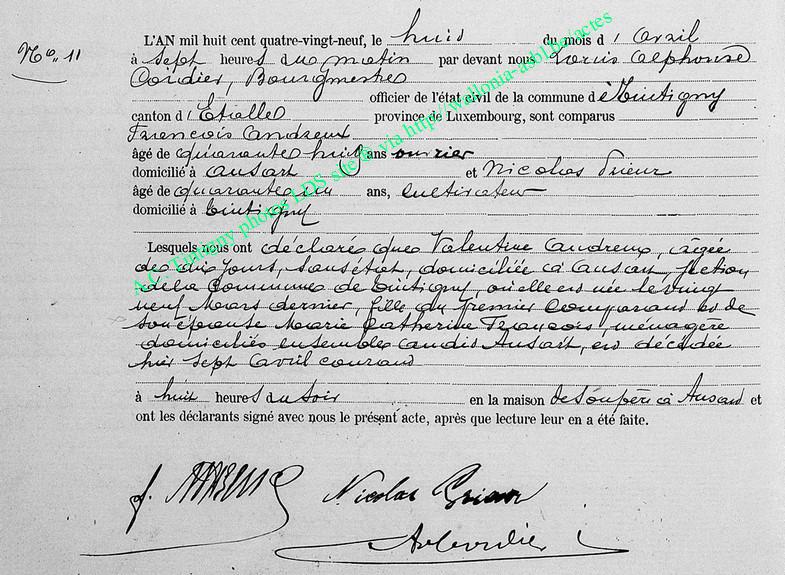 No. 11
L'AN mil huit cent quatre-vingt-neuf, le huit du mois d'avril
à sept heures du matin par devant nous Louis Alphonse
Cordier, Bourgmestre
officier de l'état civil de la commune de Tintigny
canton d'Etalle province de Luxembourg, sont comparus
François Andreux
âgé de quarante huit ans ouvrier
domicilié à Ansart et Nicolas Prieur
âgé de quarante un ans, cultivateur
domicilié à Tintigny
Lesquels nous ont déclaré que Valentine Andreux, âgée
de dix jours, sans état, domiciliée à Ansart, section
de la Commune de Tintigny, où elle est née le vingt
neuf Mars dernier, fille du premier Comparant et de
son épouse Marie Catherine François, ménagère
domiciliés ensemble audit Ansart, est décédée
hier sept avril courant
à huit heures du soir en la maison de son père à Ansart et
ont les déclarants signé avec nous le présent acte, après que lecture leur en a été faite.
f. Nicolas Prieur
A. Cordier
A.C. Tintigny photos LDS site © via http://wallonia-asbl.be/actes